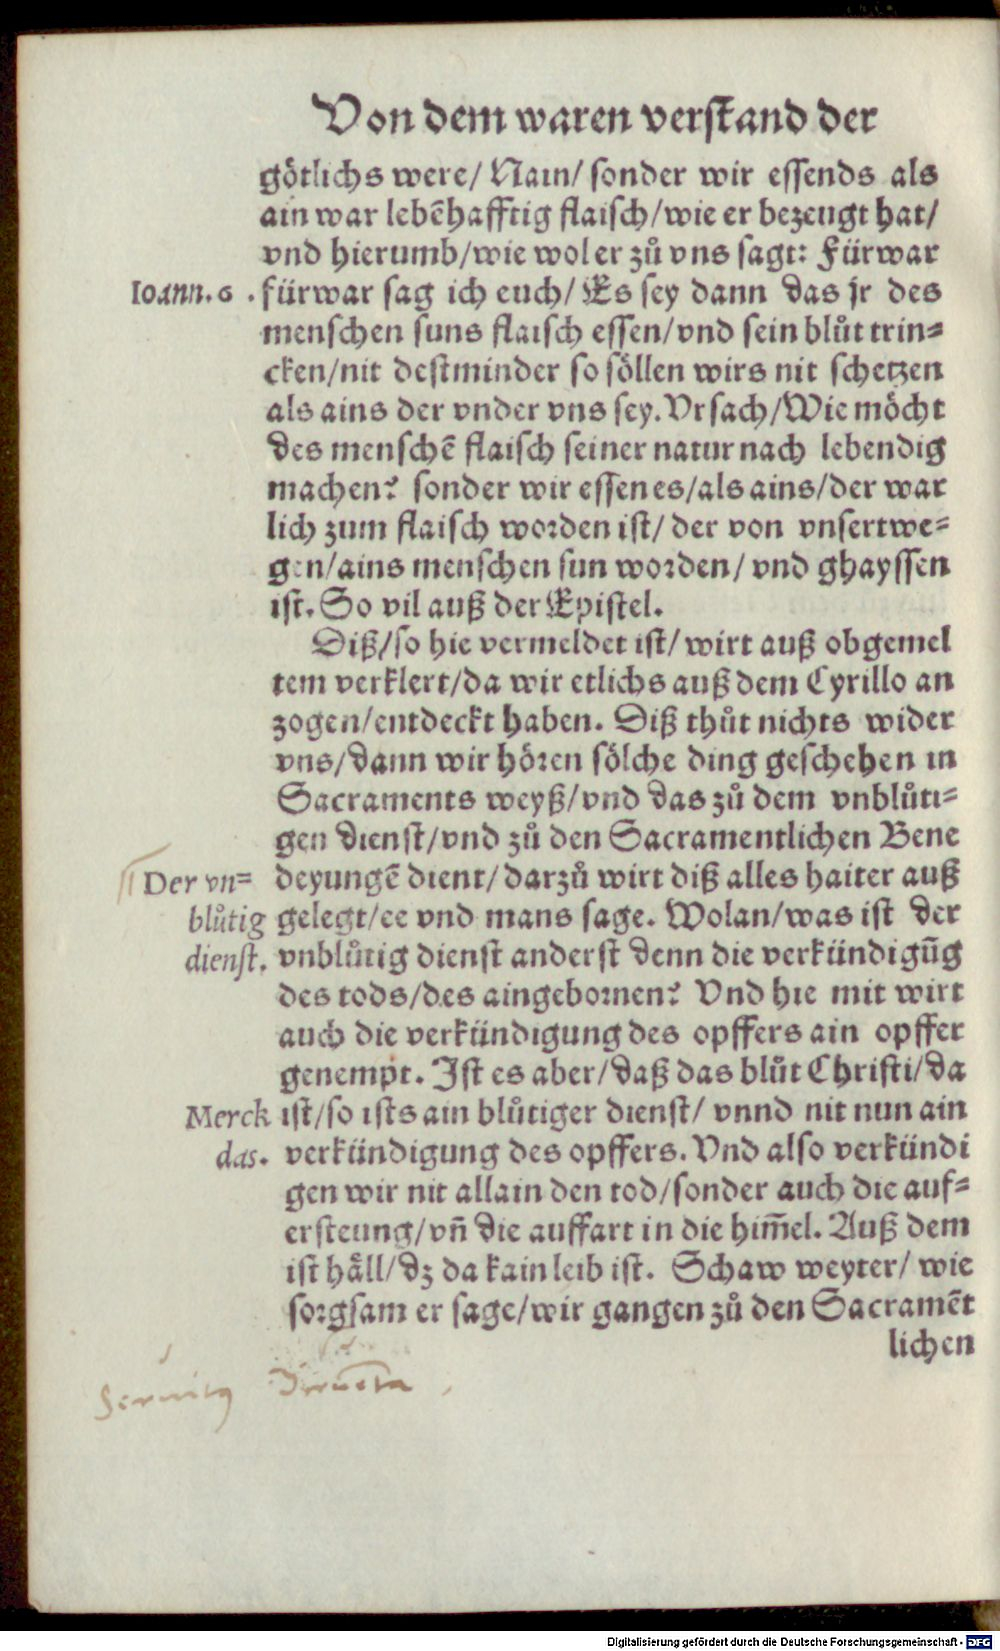 Von dem waren verstand der
götlichs were/ Nain/ sonder wir essends als
ain war lebēhafftig flaisch/wie er bezeugt hat/
vnd hierumb/wie wol er zů vns sagt: Fürwar
Ioann. 6. fürwar sag ich euch/ Es sey dann das jr des
menschen suns flaisch essen/vnd sein blůt trin=
cken/nit destminder so söllen wirs nit schetzen
als ains der vnder vns sey. Vrsach/Wie möcht
des menschē flaisch seiner natur nach lebendig
machen? sonder wir essen es/als ains/der war
lich zum flaisch worden ist/ der von vnsertwe=
gen/ains menschen sun worden/ vnd ghayssen
ist. So vil auß der Epistel.
Diß/so hie vermeldet ist/ wirt auß obgemel
tem verklert/da wir etlichs auß dem Cyrillo an
zogen/entdeckt haben. Diß thůt nichts wider
vns/dann wir hören sölche ding geschehen in
Sacraments weyß/vnd das zů dem vnblůti=
gen dienst/vnd zů den Sacramentlichen Bene
Der vn= deyungē dient/ darzů wirt diß alles haiter auß
blůtig gelegt/ee vnd mans sage. Wolan/was ist der
dienst. vnblůtig dienst anderst denn die verkündigūg
des tods/des aingebornen? Vnd hie mit wirt
auch die verkündigung des opffers ain opffer
genempt. Ist es aber/daß das blůt Christi/da
Merck ist/so ists ain blůtiger dienst/ vnnd nit nun ain
das. verkündigung des opffers. Vnd also verkündi
gen wir nit allain den tod/sonder auch die auf=
ersteung/vn̄ die auffart in die him̄el. Auß dem
ist håll/dz da kain leib ist. Schaw weyter/ wie
sorgsam er sage/wir gangen zů den Sacramēt
lichen
Digitalisierung gefördert durch die Deutsche Forschungsgemeinschaft - DFG